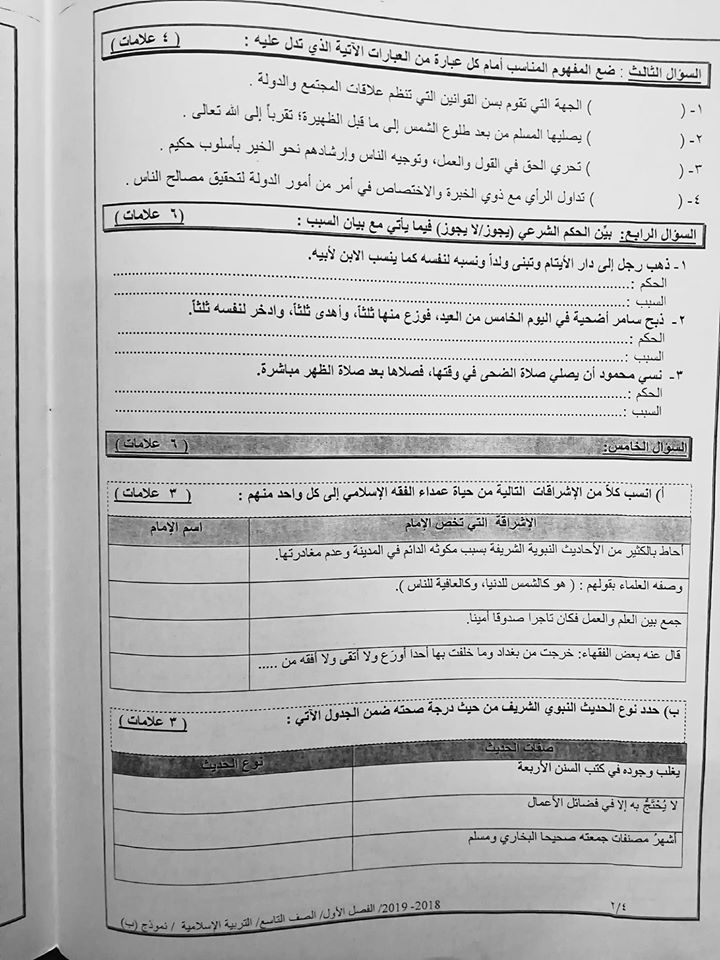 السؤال الثالث : ضع المفهوم المناسب أمام كل عبارة من العبارات الآتية الذي تدل عليه : ( ٤ علامات )
١- ( ) الجهة التي تقوم بسن القوانين التي تنظم علاقات المجتمع والدولة .
٢- ( ) يصليها المسلم من بعد طلوع الشمس إلى ما قبل الظهيرة؛ تقرباً إلى الله تعالى .
٣- ( ) تحري الحق في القول والعمل، وتوجيه الناس وإرشادهم نحو الخير بأسلوب حكيم .
٤- ( ) تداول الرأي مع ذوي الخبرة والاختصاص في أمر من أمور الدولة لتحقيق مصالح الناس .
السؤال الرابع: بيّن الحكم الشرعي (يجوز/لا يجوز) فيما يأتي مع بيان السبب : ( ٦ علامات )
١- ذهب رجل إلى دار الأيتام وتبنى ولداً ونسبه لنفسه كما ينسب الابن لأبيه.
الحكم :..........................................................................
السبب :..........................................................................
٢- ذبح سامر أضحية في اليوم الخامس من العيد، فوزع منها ثلثاً، وأهدى ثلثاً، وادخر لنفسه ثلثاً.
الحكم :..........................................................................
السبب :..........................................................................
٣- نسي محمود أن يصلي صلاة الضحى في وقتها، فصلاها بعد صلاة الظهر مباشرة.
الحكم :..........................................................................
السبب :..........................................................................
السؤال الخامس: ( ٦ علامات )
أ) انسب كلاً من الإشراقات التالية من حياة عمداء الفقه الإسلامي إلى كل واحد منهم : ( ٣ علامات )
الإشراقة التي تخص الإمام اسم الإمام
أحاط بالكثير من الأحاديث النبوية الشريفة بسبب مكوثه الدائم في المدينة وعدم مغادرتها.
وصفه العلماء بقولهم : ( هو كالشمس للدنيا، وكالعافية للناس ).
جمع بين العلم والعمل فكان تاجرا صدوقا أمينا.
قال عنه بعض الفقهاء: خرجت من بغداد وما خلفت بها أحدا أورَع ولا أتقى ولا أفقه من .....
ب) حدد نوع الحديث النبوي الشريف من حيث درجة صحته ضمن الجدول الآتي : ( ٣ علامات )
صفات الحديث نوع الحديث
يغلب وجوده في كتب السنن الأربعة
لا يُحْتَجُّ به إلا في فضائل الأعمال
أشهرُ مصنفات جمعته صحيحا البخاري ومسلم
٢/٤
2018 -2019/ الفصل الأول/ الصف التاسع/ التربية الإسلامية / نموذج (ب)